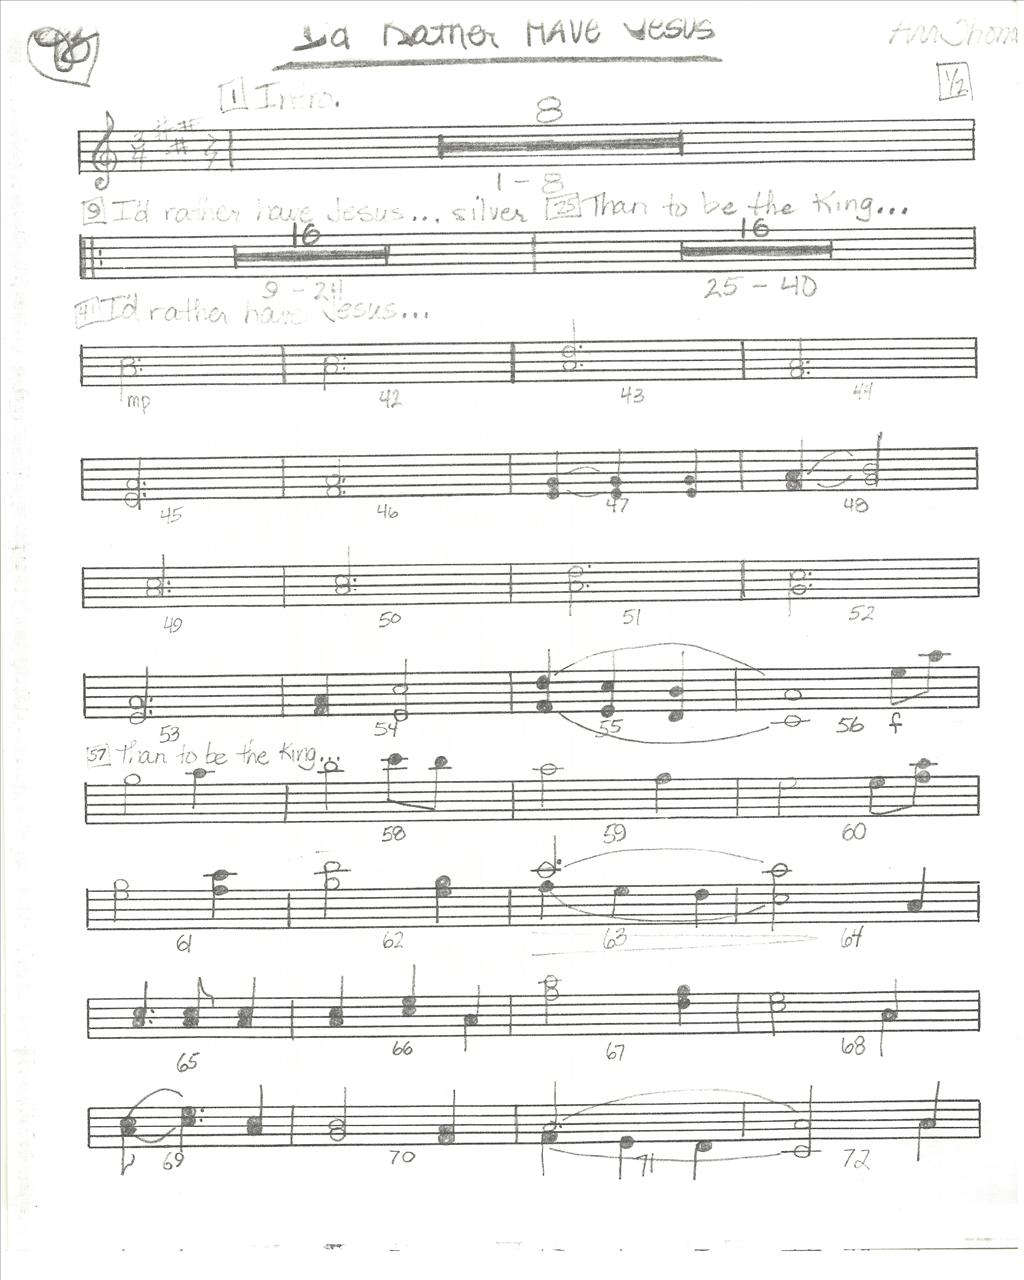 98 I'd Rather HAVE Jesus
1/2
1 Intro.
3/4 8
1 - 8
9 I'd rather have Jesus... silver 25 Than to be the King...
16 16
9 - 24 25 - 40
41 I'd rather have Jesus...
mp 42 43 44
45 46 47 48
49 50 51 52
53 54 55 56 f
57 Than to be the King...
58 59 60
61 62 63 64
65 66 67 68
69 70 71 72